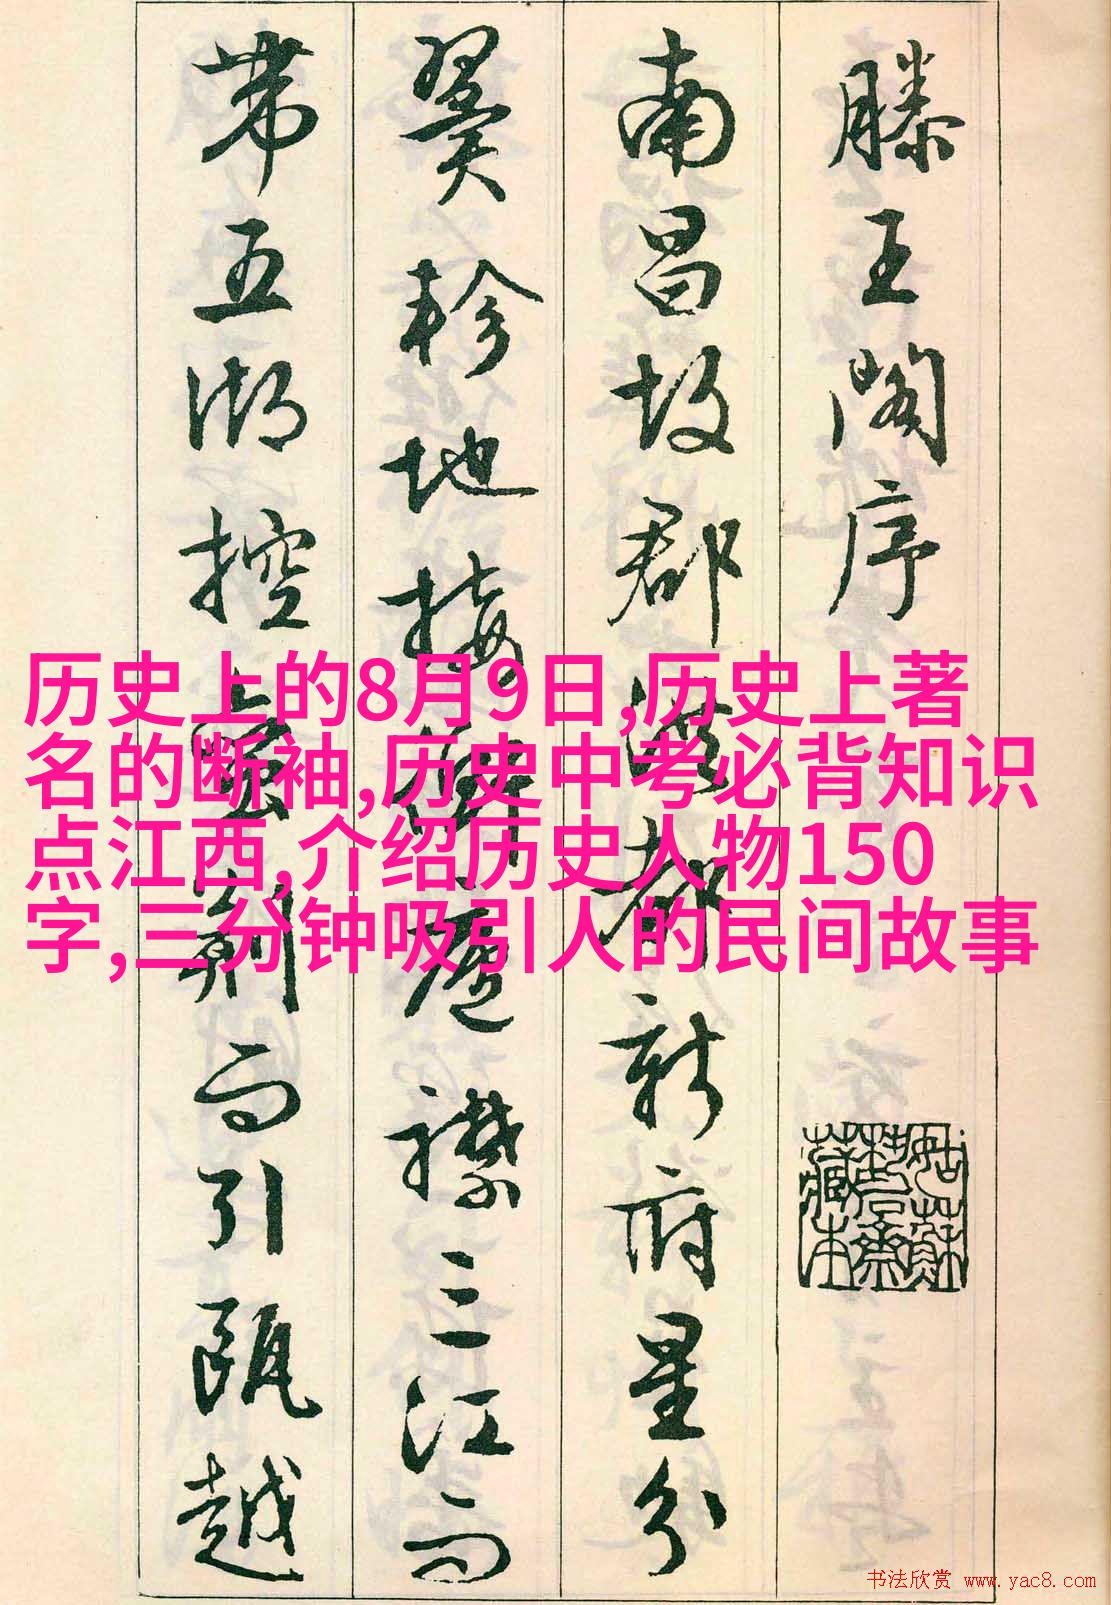 滕王閣序
南昌故郡洪都新府星分
翼軫地接衡廬襟三江而
帶五湖控蠻荊而引甌越
历史上的8月9日,历史上著
名的断袖,历史中考必背知识
点江西,介绍历史人物150
字,三分钟吸引人的民间故事
姑蘇
齋
藏本
书法欣赏 www.yac8.com